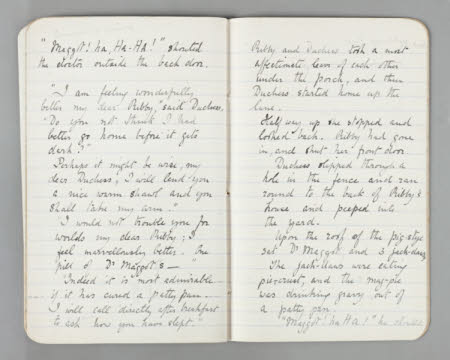 "Maggot! ha, Ha-Ha!" shouted
the doctor outside the back door.
"I am feeling wonderfully
better my dear Ribby," said Duchess.
"Do you not think I had
better go home before it gets
dark?"
Perhaps it might be wise, my
dear Duchess, I will lend you
a nice warm shawl and you
shall take my arm"
"I would not trouble you for
worlds my dear Ribby; I
feel marvellously better. One
pill of Dr Maggot's —"
"Indeed it is most admirable
if it has cured a patty pan.
I will call directly after breakfast
to ask how you have slept."
Ribby and Duchess took a most
affectionate leave of each other
under the porch, and then
Duchess started home up the
lane.
Half way up she stopped and
looked back. Ribby had gone
in, and shut her front door.
Duchess slipped through a
hole in the fence and ran
round to the back of Ribby's
house and peeped into
the yard.
Upon the roof of the pig-stye
sat Dr Maggot and 3 jack-daws.
The jack-daws were eating
pie-crust, and the mag-pie
was drinking gravy out of
a patty pan.
"Maggot! ha HA!" he